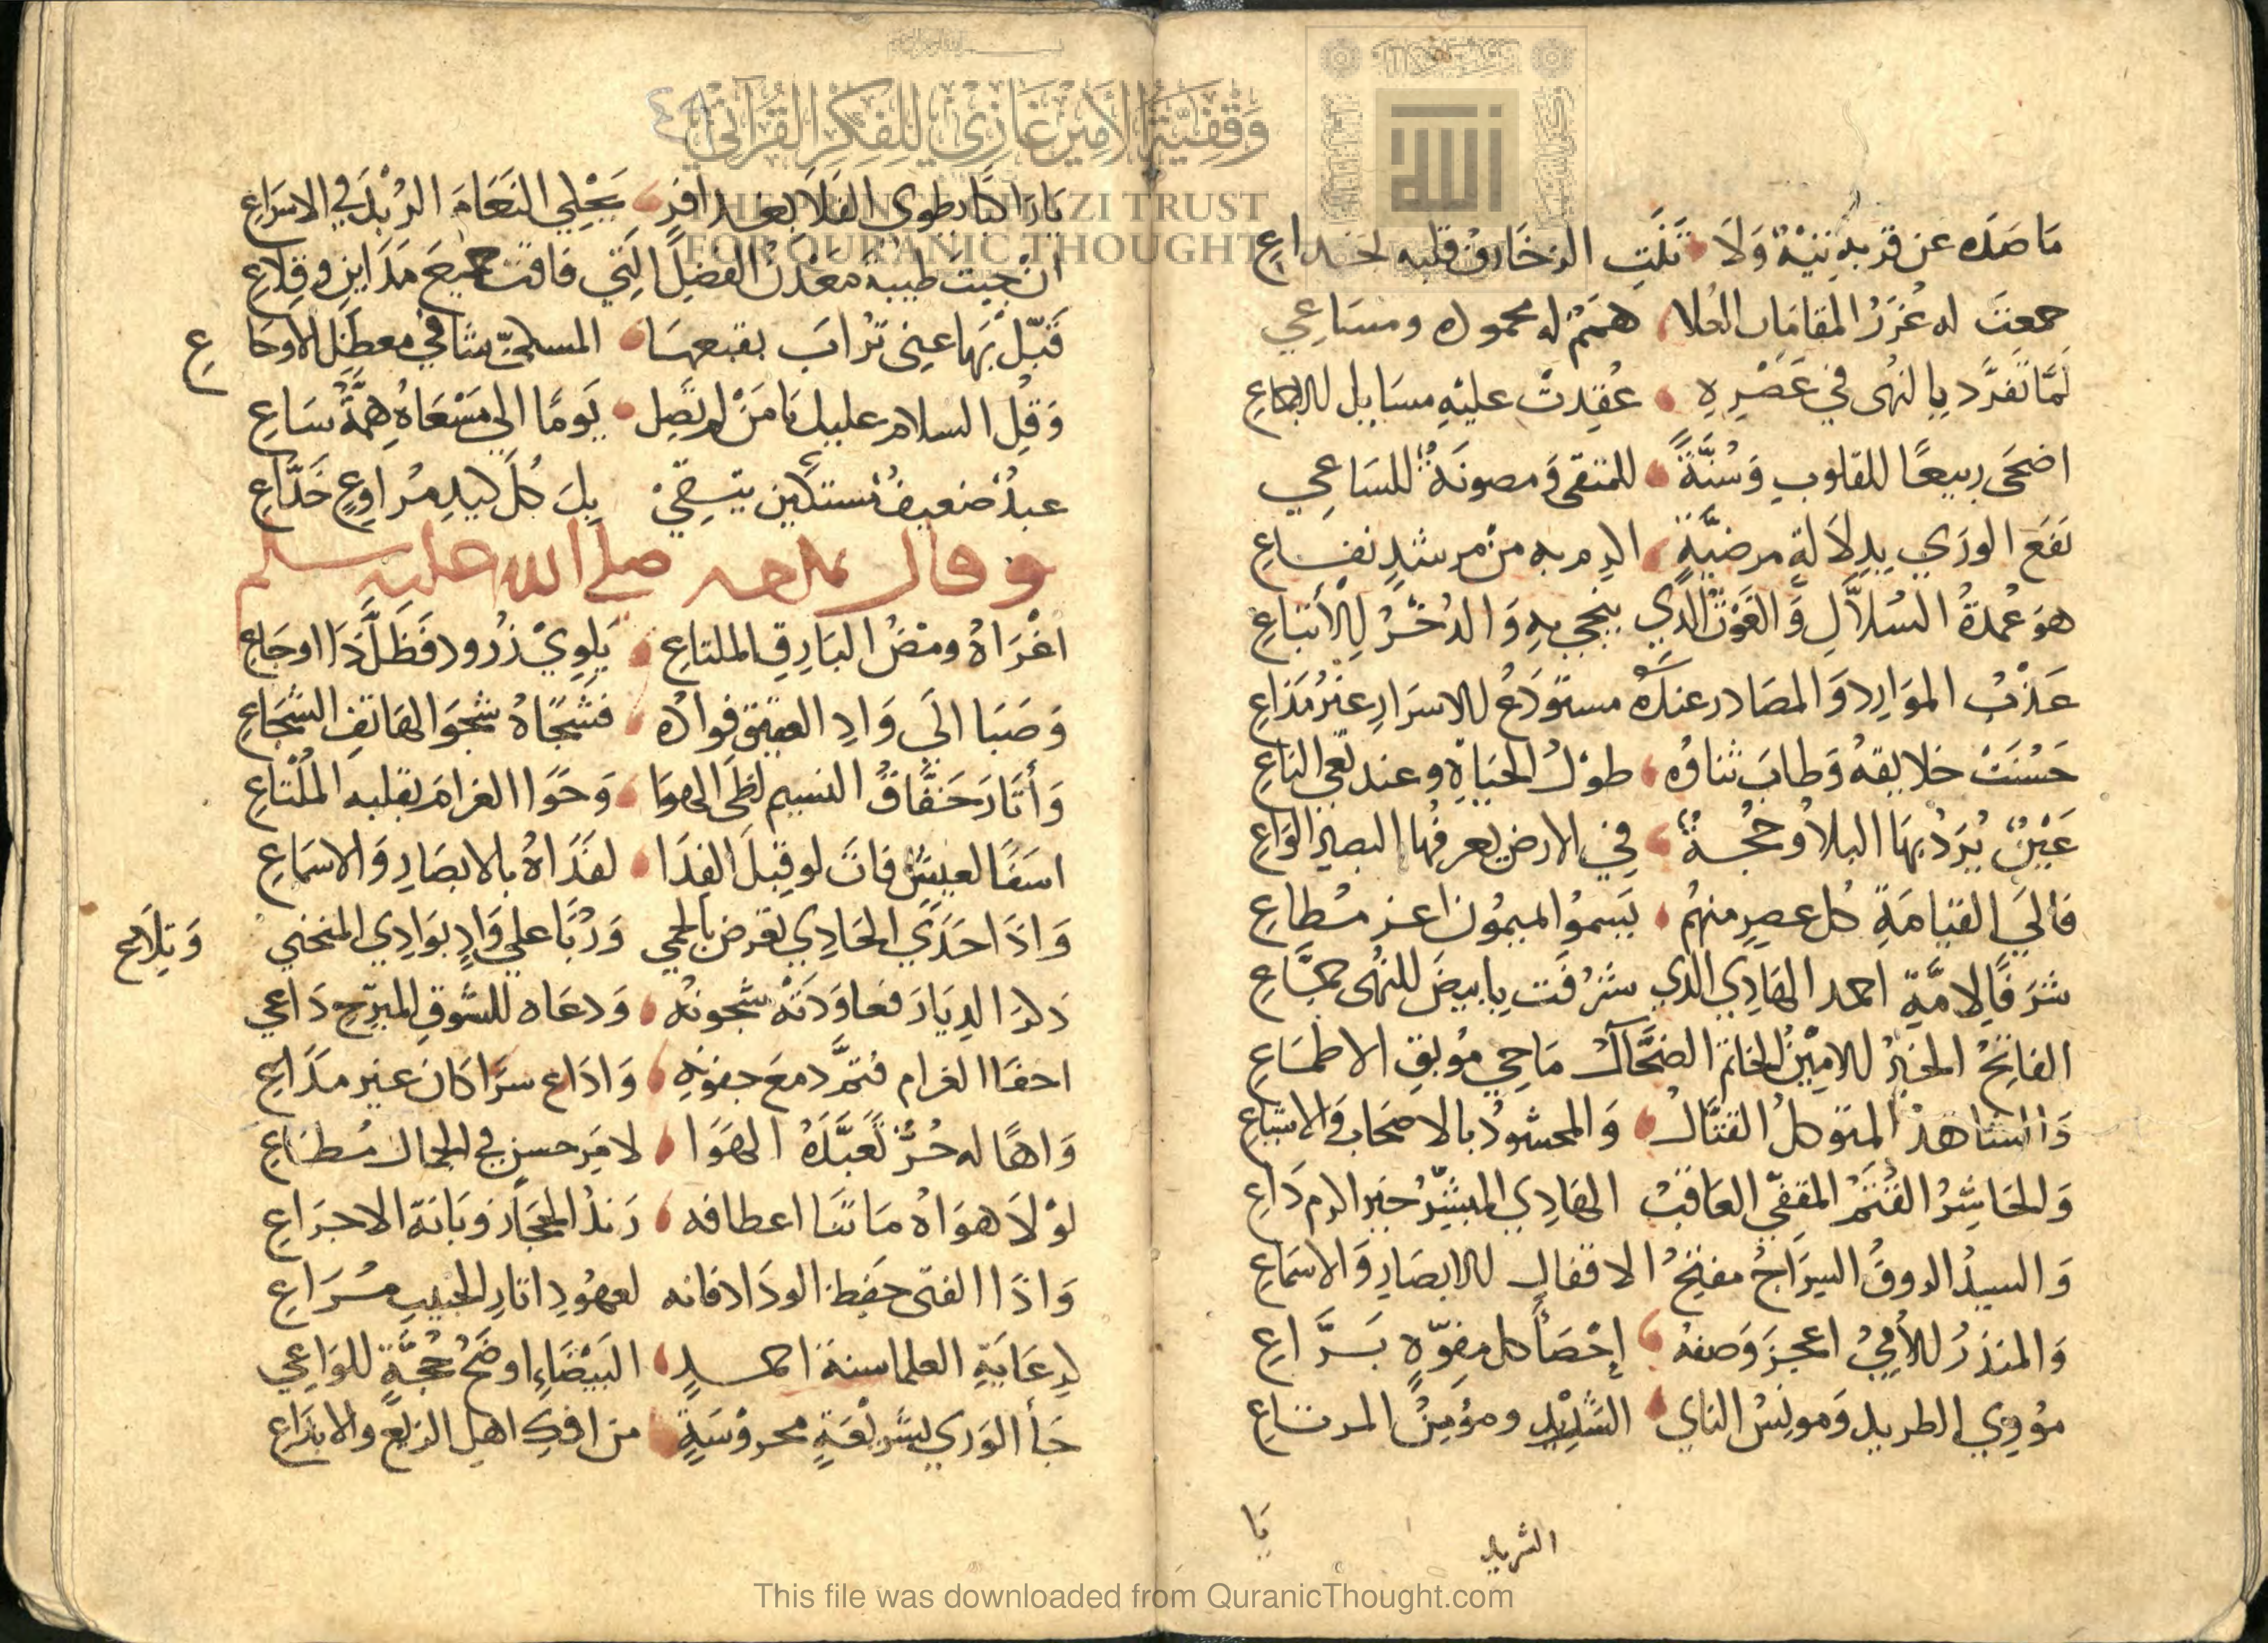 مَا صَدَه عن قربهِ نِيَّةٌ وَلَا ثَنَتِ الزخَارفُ قلبه لخداعِ
جمعت له غُرَرُ المقامَات العُلا هممٌ له محموده ومسَاعِي
لَمَّا تَفَرَّد بِالنُهى في عَصْرِهِ عُقِدتْ عليْهِ مسَايل الاجماعِ
اضحَى ربيعًا للقلوب وَسُنَّةً للمتقى وَمصونَةٌ للسَاعِي
نَفَعَ الورَي بِدِلَالةٍ مرضيَّةٍ اكرم به من مرشدٍ نفاعِ
هوَ عُمدةُ السُلاَّلِ وَالغَوْثُ الذي ينجى بهِ وَالدُخْرُ لِلأتبَاعِ
عَذْبُ الموَارِد وَالمصَادر عنده مستَودَعُ للاسرَارِ غيْرُ مُذَاعِ
حَسُنَتْ خلايقهُ وَطابَ ثناوُه طوْلُ الحيَاةِ وعند نَعْي النَاعِ
عَيْنٌ يُرَدُ بهَا البلاُ وحُجَّةٌ فِي الارض يعرفُها البصير الوَاعِ
فالىَ القيَامَةِ كل عصرٍ منهمُ يَسموُا لميمُون اعز مُطاعِ
شرَفًا لِامَّةِ احمد الهَادِي الذي شَرُفَت بِابيضَ للنُهى جمَّاعِ
الفاتحُ الخيرُ الامِيْنُ الخاتمُ الضحَّاكُ مَاحِي مُوبقِ الاطمَاعِ
وَالشاهدُ المتوكلُ القتَّالُ وَالمحشودُ بالاصحَاب وَالاشيَاعِ
وَالحَاشِرُ القُثَمُ المقفِّي العَاقبُ الهَادِي المبشِّرُ خير اكرم دَاعِ
وَالسيدُ الروفُ السِرَاجُ مفتِّحُ الاقفال للابصَارِ وَالاسمَاعِ
وَالمنذرُ الأُمِيُّ اعجزَ وَصفهُ إحْصَأ كل مفوّهٍ بَرَّاعِ
مؤوِي الطريد وَمونِسُ الناي الشَدِيْدِ ومؤمِنُ المرتاعِ
الشريد
يَا
يَا رَاكبًا يطوي الفَلَا بعذافرٍ يَحْكِي النَعَامَ الرُبْدَ في الاسرَاعِ
ان جيتَ طيبةَ معْدنَ الفضلِ التي فاقت جميعَ مَدَاينٍ وقِلَاعِ
قَبّلْ بهَا عنى تُرابَ بقيعهَا المسكيّ شافي معضلِ الاوجَاعِ
وَقلِ السلام عليك يَا مَنْ لم تصِل يَومًا الى مَسْعَاهُ همَّةُ سَاعِ
عبدُ ضعيفٌ مستكين يتقِي بِكَ كُلَّ كيد مُرَاوِعٍ خَدَّاعِ
وقال يمدحه صلى الله عليه وسلم
اغْرَاهُ ومضُ البَارِقِ الملتاعِ بِلِوِيْ ذُرود فَظَلَّ ذَا اوجَاعِ
وَصَبَا الىَ وَادِ العقيق فوادُه فشجَاهُ شجوَ الهَاتفِ السَّجَاعِ
وَأثَارَ خَفَّاقُ النسيم لظَى الهوَا وَحَوَا الغرامَ بقلبه المُلْتَاعِ
اسَفًا لعيشٍ فاتَ لو قبلَ الفِدَا لفدَاهُ بالابصَارِ وَالاسمَاعِ
وَاذَا حَدَي الحَادِي تعرض بالحمي وَرُبًا علي وَادٍ بوَادِي المنحني وَتِلَاعِ
ذكرَ الدِيَارَ فعاوَدَتْهُ شجونهُ وَدعَاه للشَوقِ المبرّحِ دَاعي
اخفَا الغرام فنمَّ دمعَ جفونهِ وَاذاع سرًا كان غير مذَاعِ
وَاهًا له حُرٌّ تَعَبَّدَهُ الهَوَا لامَير حسنٍ في الجمال مُطَاعِ
لوْلَا هوَاهُ مَا ثنَا اعطافه رَندُ الحجَازِ وَبَانَة الاجرَاعِ
وَاذَا الفتى حفِظ الودَاد فانه لعهُودِ اثارِ الحبيبِ مُرَاعِ
كرِعَايَةِ العلما سنة احمدٍ البَيْضَاءِ اوضَحُ حُجَّةٍ للوَاعِي
جَأ الوَري بشريْعَةٍ محروْسَةٍ من افكِ اهلِ الزيغِ والابدَاعِ